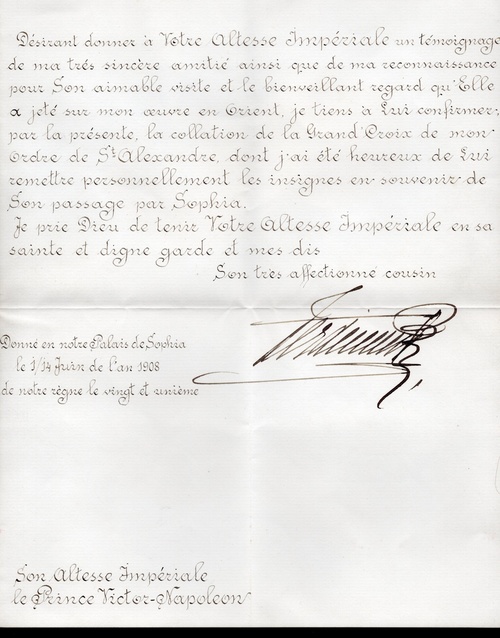 Désirant donner à Votre Altesse Impériale un témoignage
de ma trés sincère amitié ainsi que de ma reconnaissance
pour Son aimable visite et le bienveillant regard qu'Elle
a jeté sur mon œuvre en Orient, je tiens à Lui confirmer,
par la présente, la collation de la Grand'Croix de mon
Ordre de St Alexandre, dont j'ai été heureux de Lui
remettre personnellement les insignes en souvenir de
Son passage par Sophia.
Je prie Dieu de tenir Votre Altesse Impériale en sa
sainte et digne garde et mes dis
Son très affectionné cousin
Donné en notre Palais de Sophia
le 1/14 Juin de l'an 1908
de notre règne le vingt et unième
Son Altesse Impériale
le Prince Victor-Napoleon